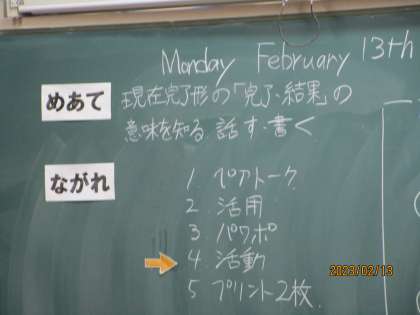 Monday February 13th
めあて
現在完了形の「完了・結果」の
意味を知る 話す・書く
ながれ
1. ペアトーク
2. 活用
3. パワポ
4. 活動
5. プリント2枚.
2023/02/13